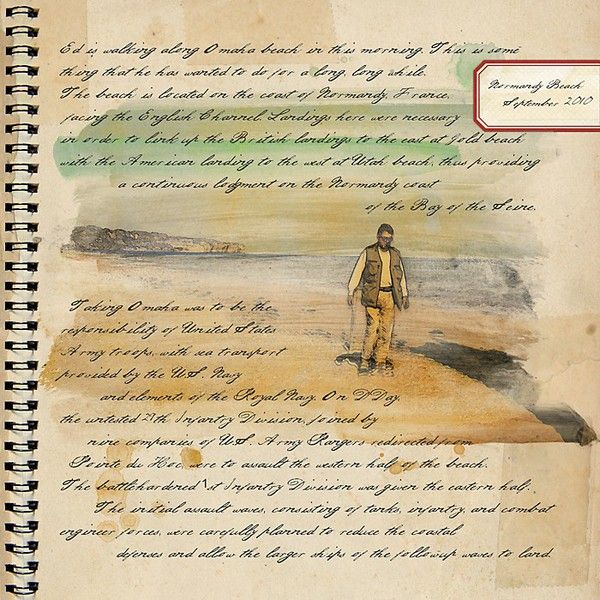 Ed is walking along Omaha beach in this morning. This is some
thing that he has wanted to do for a long, long while.
The beach is located on the coast of Normandy, France,
facing the English Channel. Landings here were necessary
in order to link up the British landings to the east at Gold beach
with the American landing to the west at Utah beach, thus providing
a continuous lodgment on the Normandy coast
of the Bay of the Seine.
Normandy Beach
September 2010
Taking Omaha was to be the
responsibility of United States
Army troops, with sea transport
provided by the U.S. Navy
and elements of the Royal Navy. On D Day,
the untested 29th Infantry Division, joined by
nine companies of U.S. Army Rangers redirected from
Pointe du Hoc, were to assault the western half of the beach.
The battlehardened 1st Infantry Division was given the eastern half.
The initial assault waves, consisting of tanks, infantry, and combat
engineer forces, were carefully planned to reduce the coastal
defenses and allow the larger ships of the followup waves to land.